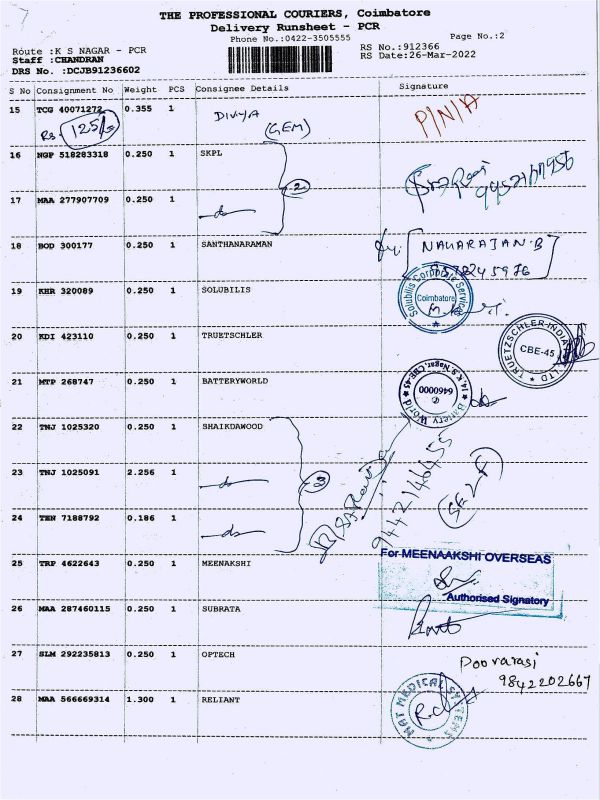 THE PROFESSIONAL COURIERS, Coimbatore
Delivery Runsheet - PCR
Phone No.:0422-3505555 Page No.:2
Route :K S NAGAR - PCR RS No.:912366
Staff :CHANDRAN RS Date:26-Mar-2022
DRS No. :DCJB91236602
S No Consignment No Weight PCS Consignee Details Signature
15 TCG 40071272 0.355 1 DIVYA P/N/A
Rs. 125/- (GEM)
16 NGP 518283318 0.250 1 SKPL
2
17 MAA 277907709 0.250 1 -do-
18 BOD 300177 0.250 1 SANTHANARAMAN NAHARAJAN.B
19 KHR 320089 0.250 1 SOLUBILIS Solubilis Corporate Services Coimbatore
20 KDI 423110 0.250 1 TRUETSCHLER TRUETZSCHLER INDIA LTD CBE-45
21 MTP 268747 0.250 1 BATTERYWORLD Battery World 14, K.S.Nagar, CBE-45 6460000
22 TNJ 1025320 0.250 1 SHAIKDAWOOD
23 TNJ 1025091 2.256 1 -do- 9442146455
24 TEN 7188792 0.186 1 -do-
25 TRP 4622643 0.250 1 MEENAKSHI For MEENAAKSHI OVERSEAS
Authorised Signatory
26 MAA 287460115 0.250 1 SUBRATA
27 SLM 292235813 0.250 1 OPTECH Poovarasi
9842202667
28 MAA 566669314 1.300 1 RELIANT MAT MEDICAL SYSTEMS